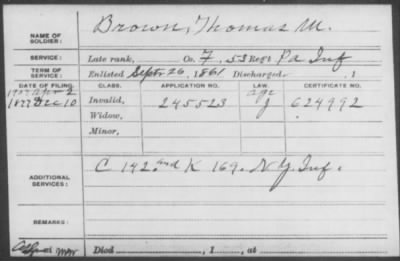 NAME OF SOLDIER: Brown, Thomas M.
SERVICE: Late rank, Co. F, 53 Reg't Pa Inf
TERM OF SERVICE: Enlisted Sept. 26, 1861 Discharged , 1
DATE OF FILING. CLASS. APPLICATION NO. LAW. CERTIFICATE NO.
Apr 2 age
1877 Dec 10 Invalid, 245523 J 624992
Widow,
Minor,
ADDITIONAL SERVICES: C 142 and K 169. N.Y. Inf.
REMARKS:
Died , 1 , at